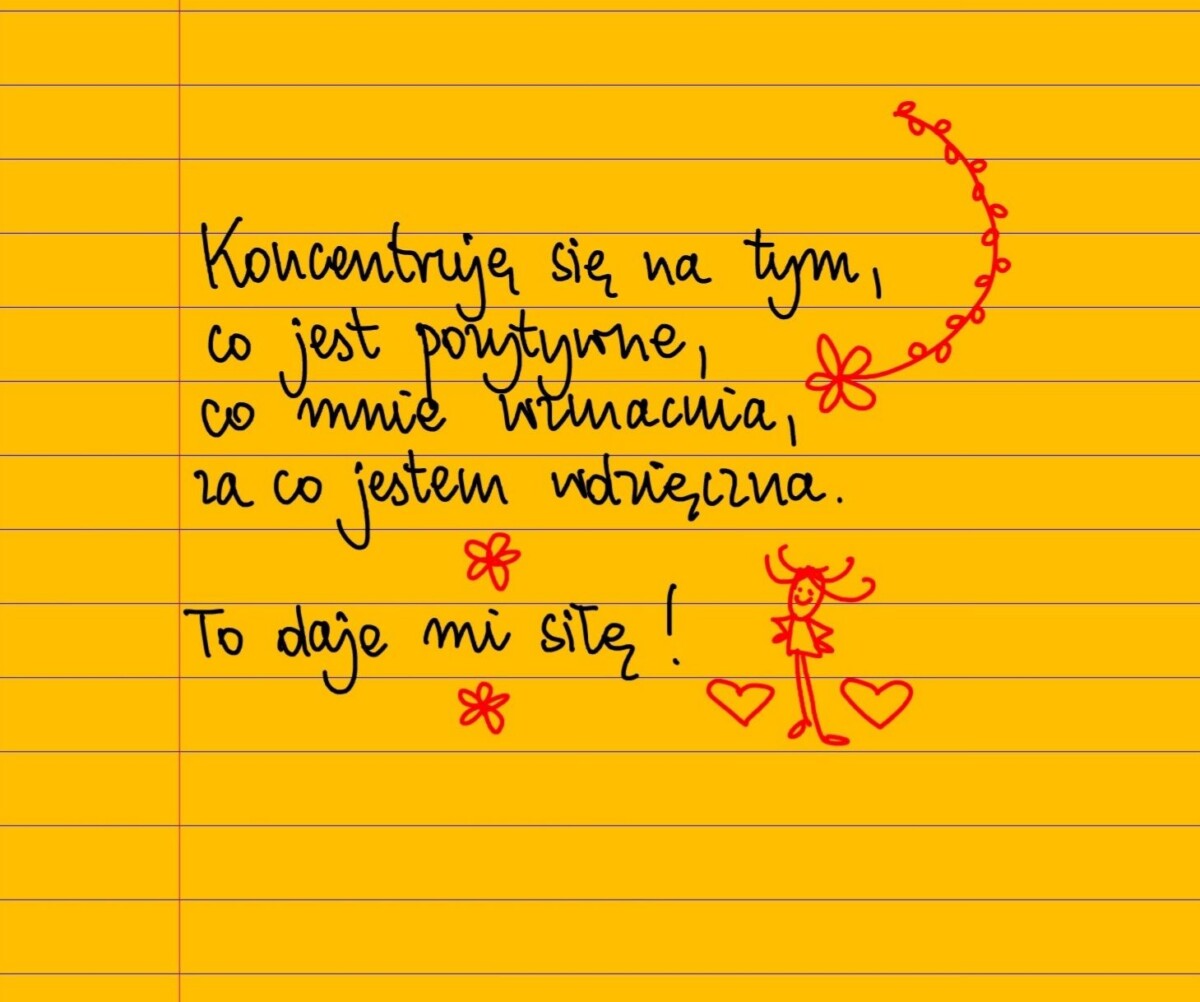 Koncentruję się na tym,
co jest pozytywne,
co mnie wzmacnia,
za co jestem wdzięczna.
To daje mi siłę!